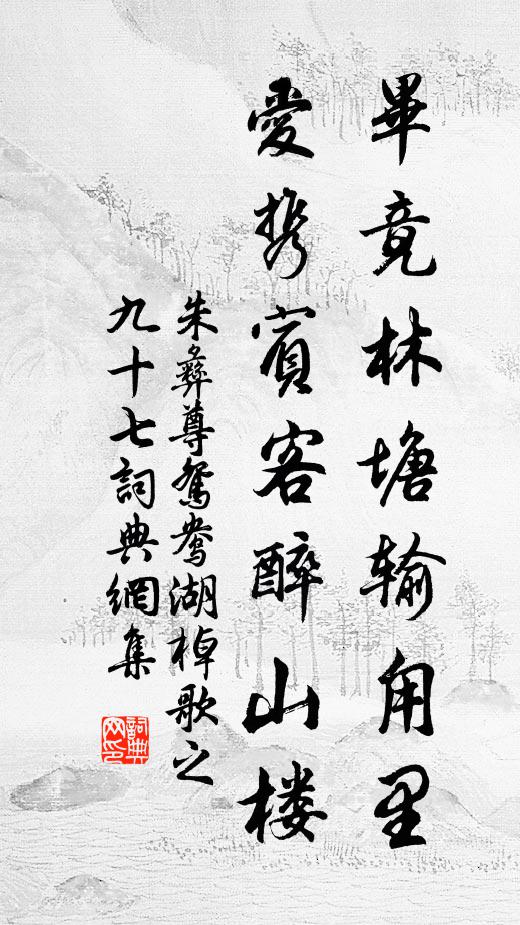 畢竟林塘输甪里
愛携賓客醉山楼
朱彝尊鴛鴦湖棹歌之
九十七詞典網集
詞典网印